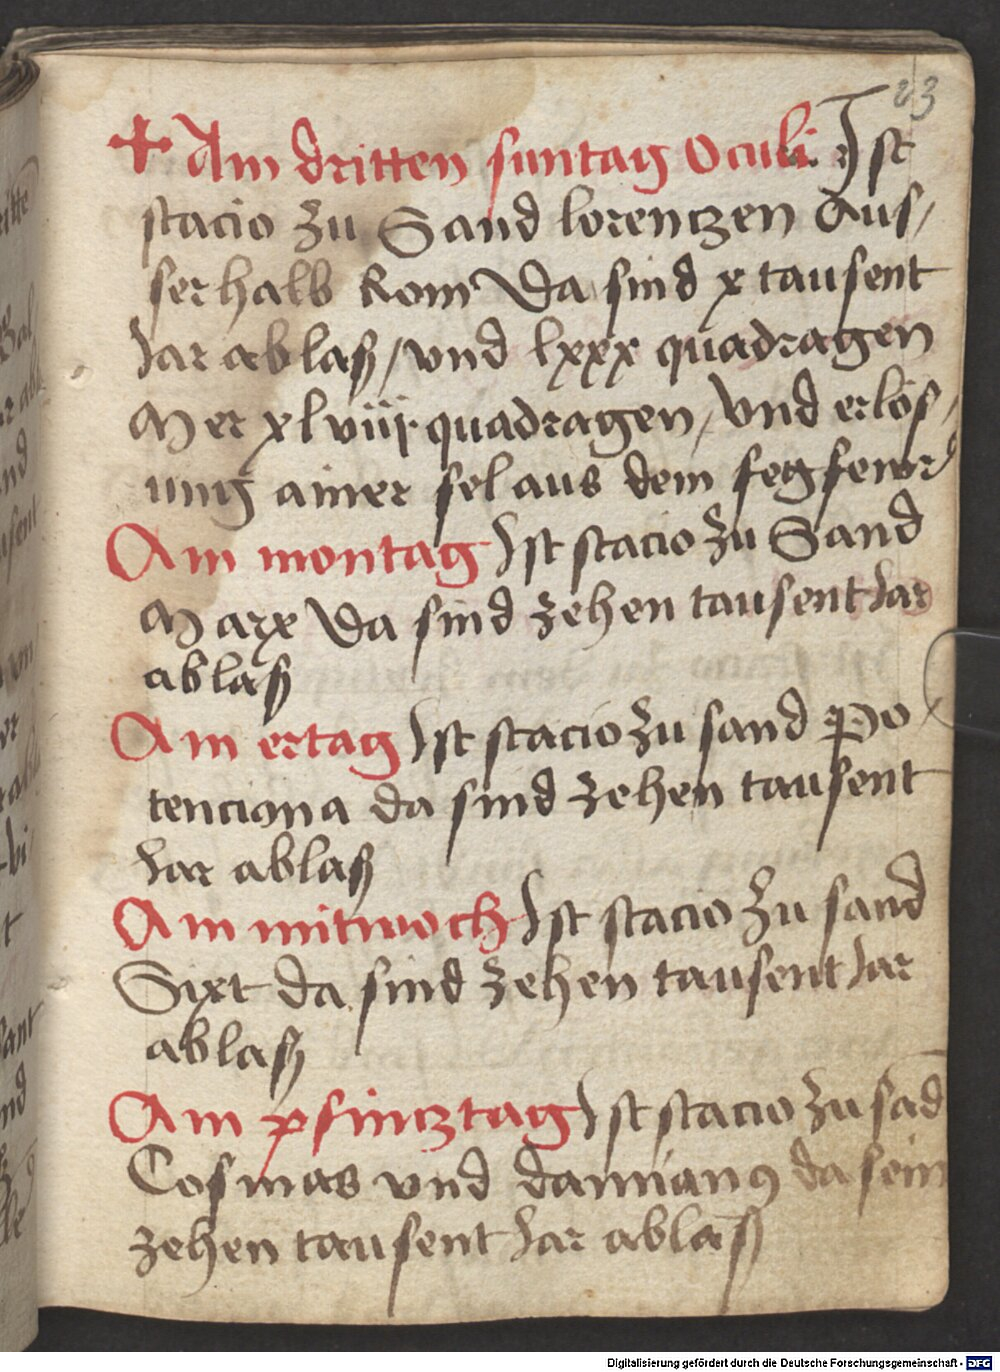 23
✚ Am dritten suntag Oculi Ist
stacio zu Sand lorenczen Aus/
serhalb Rom Da sind x tausent
Jar ablaß / vnd lxxx quadragen
Mer xlviij quadragen / Vnd erlös/
ung ainer sel aus dem fegfewr
Am montag Ist stacio zu Sand
Marx Da sind zehen tausent Jar
ablaß
Am ertag Ist stacio zu sand Po
tenciana da sind zehen tausent
Jar ablaß
Am mitwoch Ist stacio zu sand
Sixt da sind zehen tausent Jar
ablaß
Am pfincztag Ist stacio zu sād
Cosmas vnd damianꝰ da sein
zehen tausent Jar ablaß
Digitalisierung gefördert durch die Deutsche Forschungsgemeinschaft - DFG